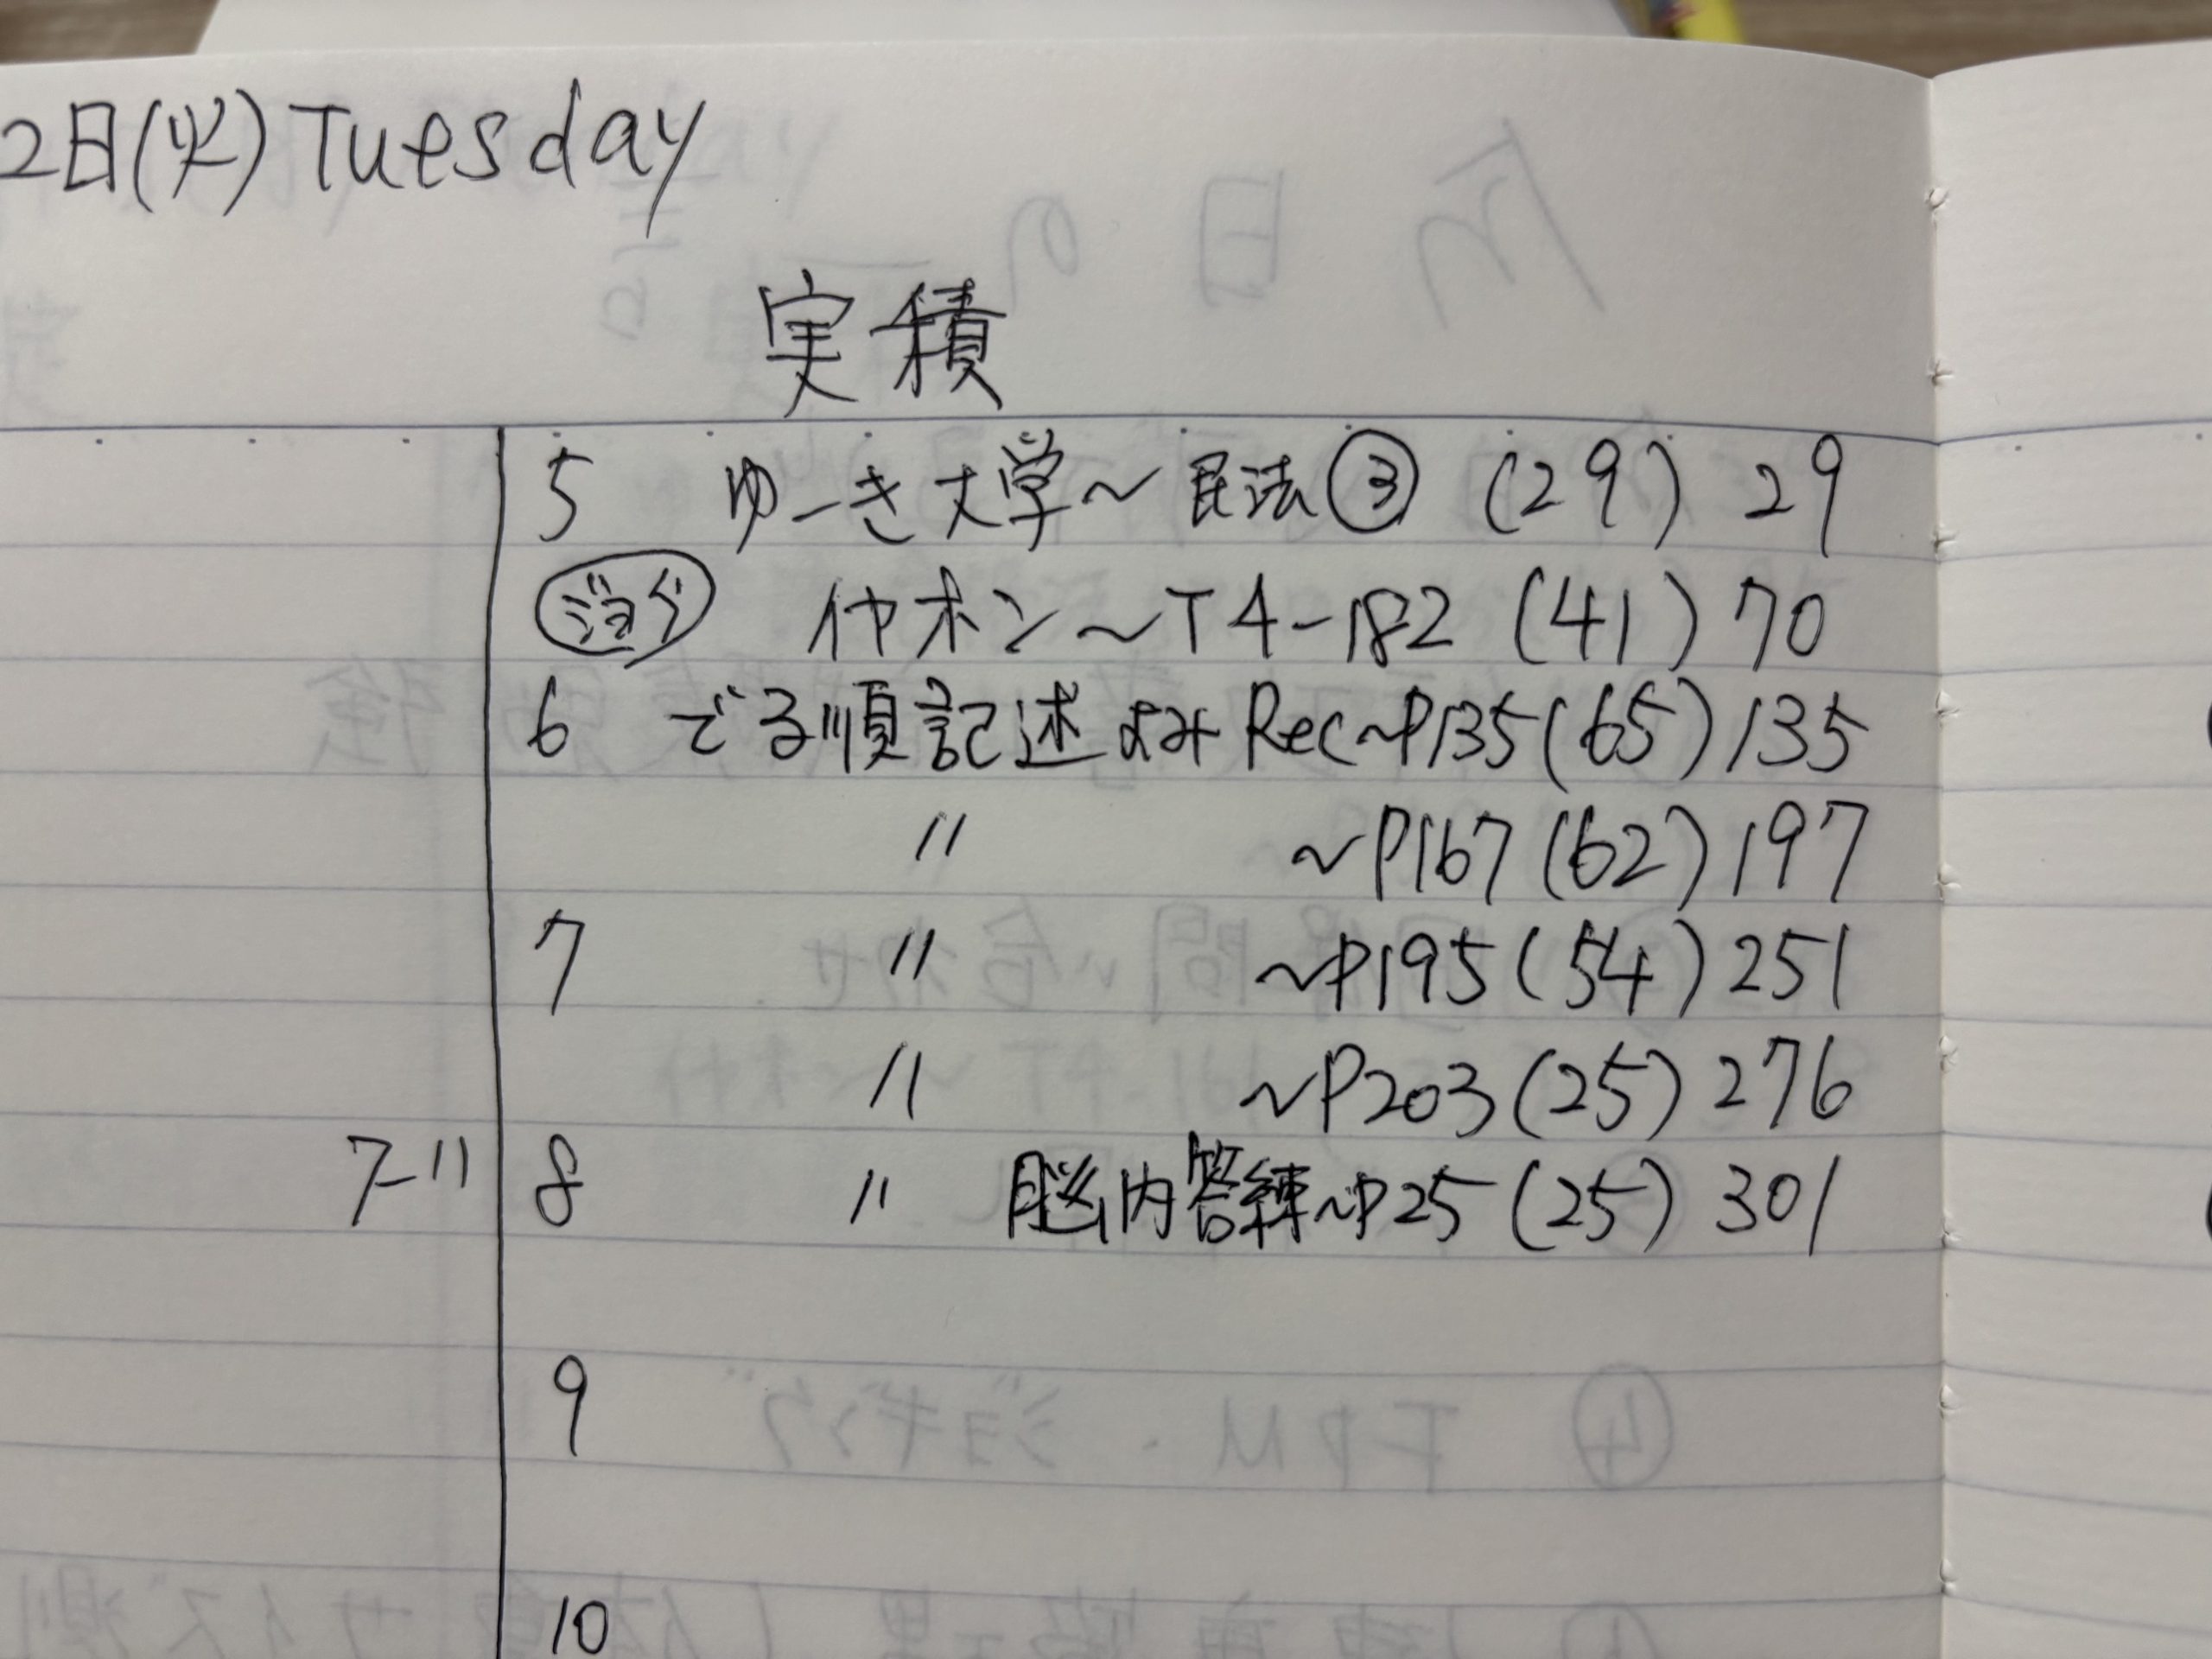 2日(火) Tuesday
実積
5 ゆーき大学～民法③ (29) 29
ジョグ イヤホン～T4-182 (41) 70
6 でる順記述よみRec～P135 (65) 135
〃 ～P167 (62) 197
7 〃 ～P195 (54) 251
〃 ～P203 (25) 276
7-11 8 〃 脳内答練～P25 (25) 301
9
10